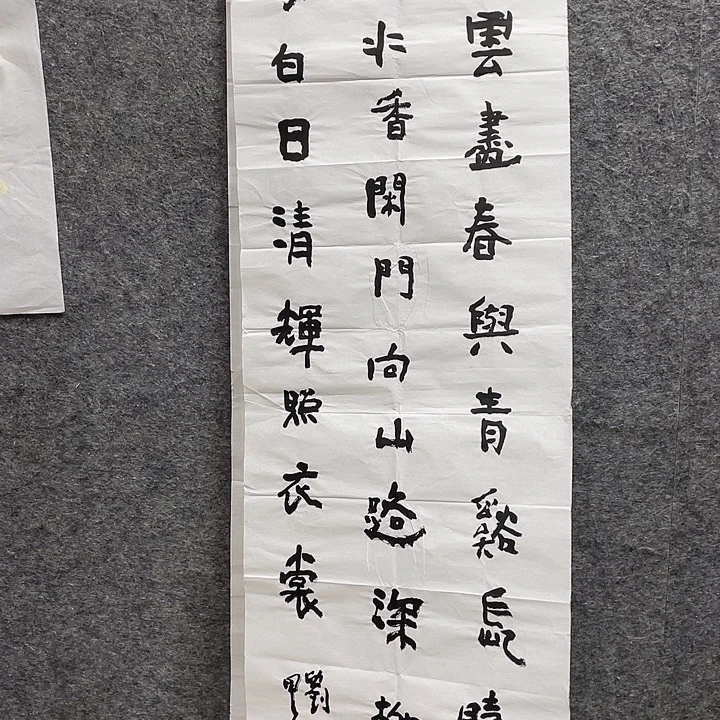 雲盡春與青谿長時
水香閑門向山路深柳
白日清輝照衣裳